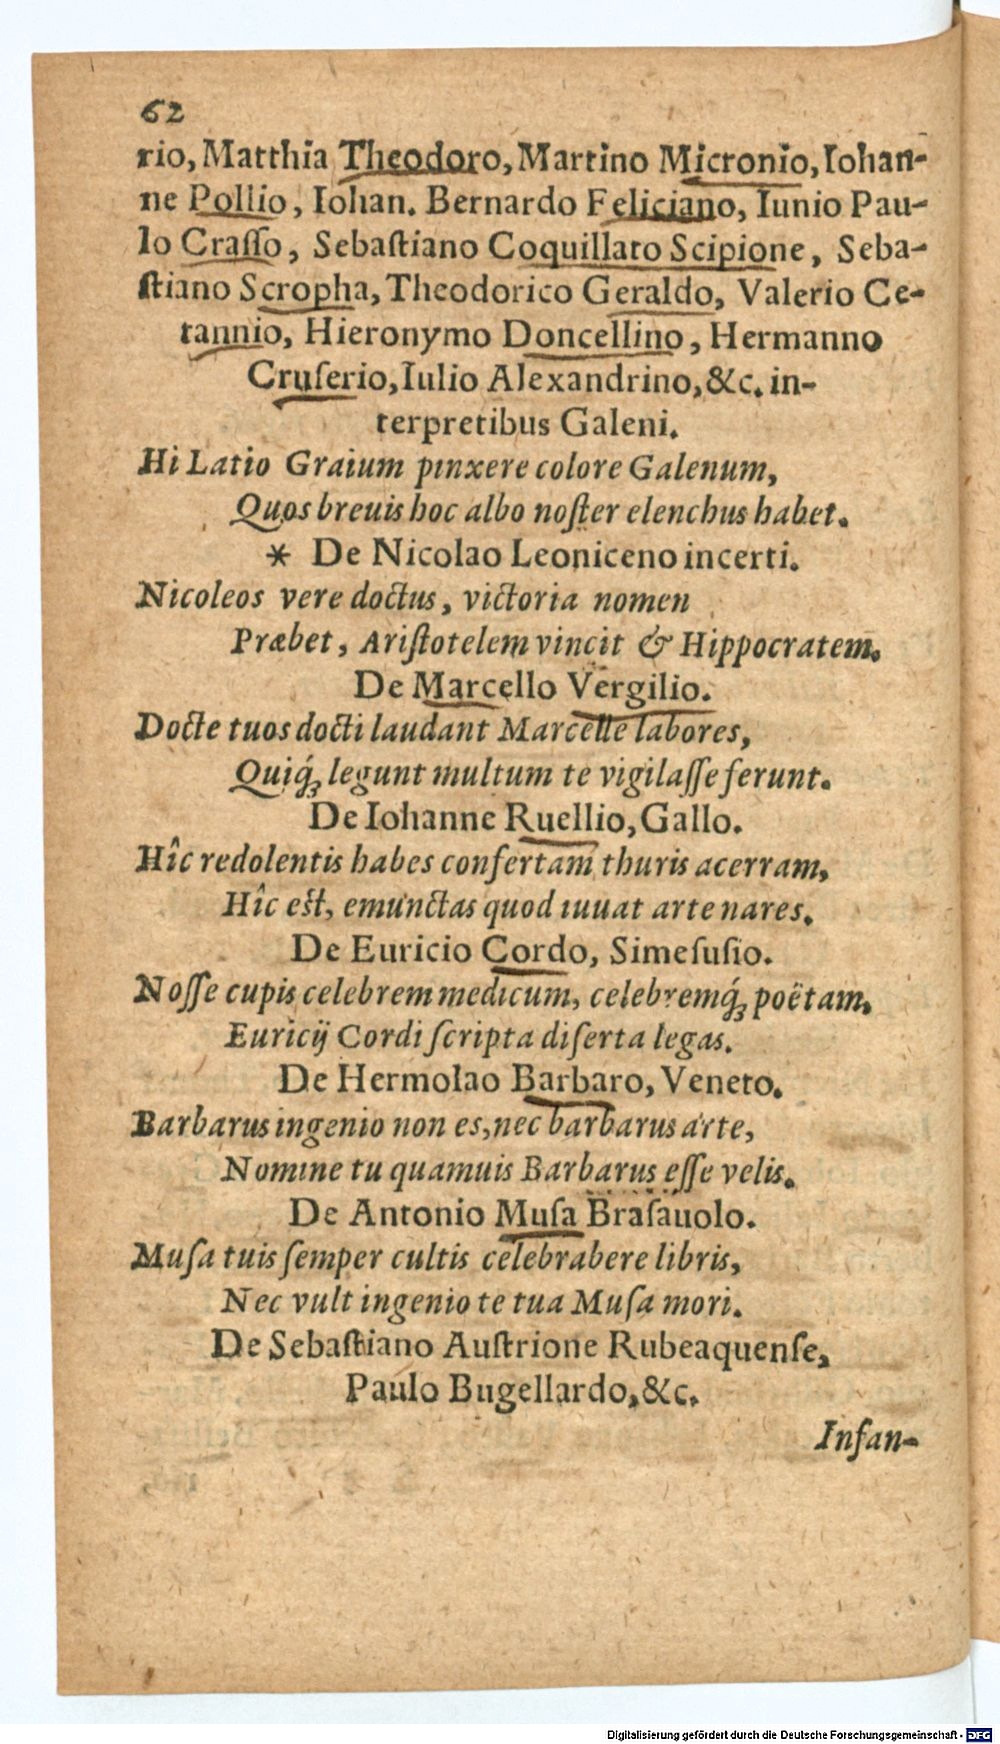 62
rio, Matthia Theodoro, Martino Micronio, Iohan-
ne Pollio, Iohan. Bernardo Feliciano, Iunio Pau-
lo Craſſo, Sebaſtiano Coquillato Scipione, Seba-
ſtiano Scropha, Theodorico Geraldo, Valerio Ce-
tannio, Hieronymo Doncellino, Hermanno
Cruſerio, Iulio Alexandrino, &c. in-
terpretibus Galeni.
Hi Latio Graium pinxere colore Galenum,
Quos breuis hoc albo noſter elenchus habet.
* De Nicolao Leoniceno incerti.
Nicoleos vere doctus, victoria nomen
Præbet, Ariſtotelem vincit & Hippocratem.
De Marcello Vergilio.
Docte tuos docti laudant Marcelle labores,
Quiq́ꝫ legunt multum te vigilaſſe ferunt.
De Iohanne Ruellio, Gallo.
Hîc redolentis habes confertam thuris acerram,
Hîc eſt, emunctas quod iuuat arte nares.
De Euricio Cordo, Simeſuſio.
Noſſe cupis celebrem medicum, celebremq́ꝫ poëtam,
Euricij Cordi ſcripta diſerta legas.
De Hermolao Barbaro, Veneto.
Barbarus ingenio non es, nec barbarus arte,
Nomine tu quamuis Barbarus eſſe velis.
De Antonio Muſa Braſauolo.
Muſa tuis ſemper cultis celebrabere libris,
Nec vult ingenio te tua Muſa mori.
De Sebaſtiano Auſtrione Rubeaquenſe,
Paulo Bugellardo, &c.
Infan-
Digitalisierung gefördert durch die Deutsche Forschungsgemeinschaft - DFG